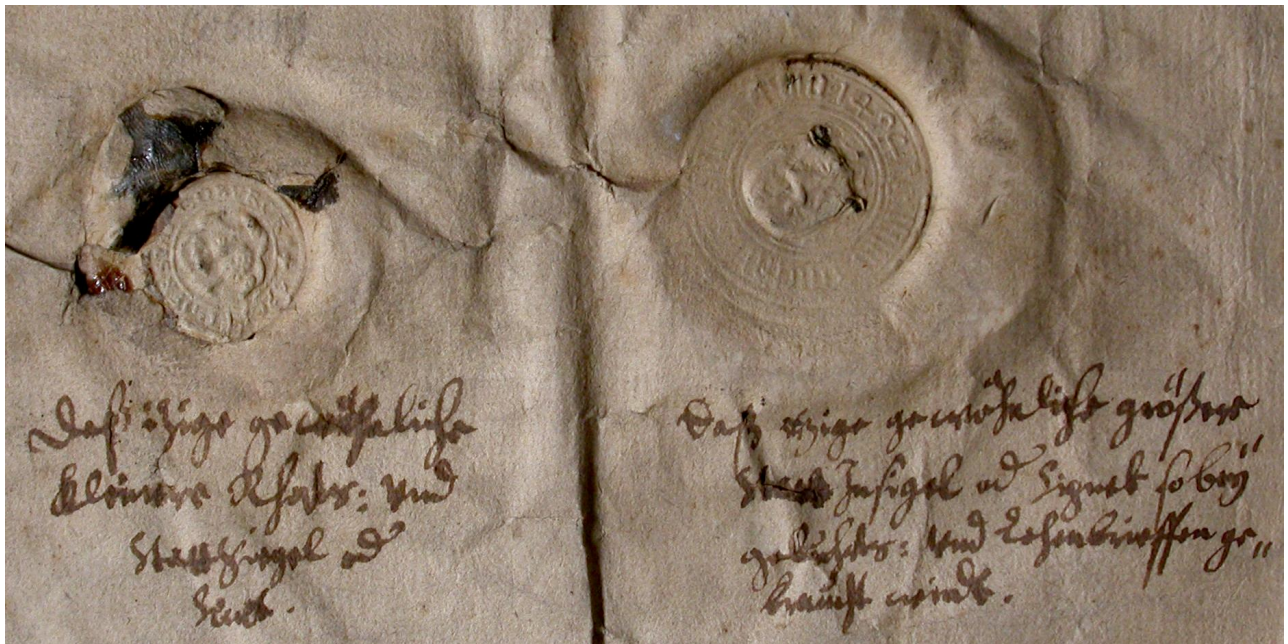 Daß itzige gewöhnliche
kleinere Rhats: vnd
Statt Siegel od

Daß itzige gewöhnliche größere
Statt Insigel od Signet so bey
gerichts: vnd Lehenbrieffen ge„
braucht wirdt.